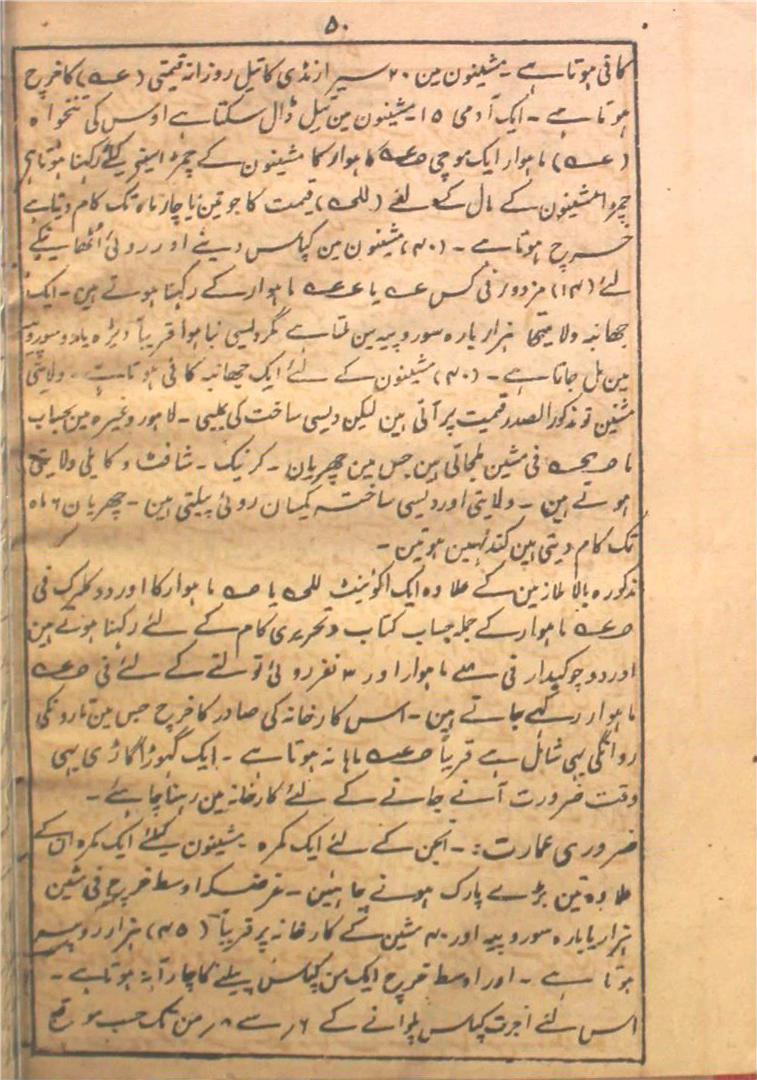 ۵۰
کافی ہوتا ہے ۔ مشینون مین ۲۰ سیر ارنڈی کا تیل روزانہ قیمتی ( ) کا خرچ
ہوتا ہے ۔ ایک آدمی ۱۵ مشینون مین تیل ڈال سکتا ہے اوس کی تنخواہ
( ) ماہوار ایک موچی ماہوار کا مشینون کے چمڑہ سینے کیلئے رکھنا ہوتا ہی
چمڑا مشینون کے مال کے لئے ( ) قیمت کا جو تین یا چار ماہ تک کام دیتا ہے
خرچ ہوتا ہے ۔ (۴۰) مشینون مین کپاس دینے اور روئی اٹھانیکے
لئے (۱۴) مزدور فی کس یا ماہوار کے رکھنا ہوتے ہین ۔ ایک
جھانبہ ولایتی ہزار بارہ سو روپیہ مین ملتا ہے مگر دیسی بنا ہوا قریباً ڈیڑہ یا دو سو روپیہ
مین مل جاتا ہے ۔ (۴۰) مشینون کے لئے ایک جھانبہ کافی ہوتا ہے ۔ ولایتی
مشین تو مذکور الصدر قیمت پر آتی ہین لیکن دیسی ساخت کی ۔ لاہور وغیرہ مین بحساب
فی مشین ملجاتی ہین جس مین چھریان ۔ کرنیک ۔ شافٹ و ولایتی
ہوتے ہین ۔ ولایتی اور دیسی ساختہ یکسان روئی بیلتی ہین ۔ چھریان ۶ ماہ
تک کام دیتی ہین کند نہین ہوتین ۔
مذکورہ بالا ملازمین کے علاوہ ایک اکونٹنٹ یا ماہوار کا اور دو کلرک فی
ماہوار کے جملہ حساب کتاب و تحریری کام کے لئے رکھنا ہوتے ہین
اور دو چوکیدار فی ماہوار اور ۳ نفر روئی تولنے کے لئے فی
ماہوار رکھے جاتے ہین ۔ اس کارخانہ کی صادر کا خرچ جس مین تار و نکی
روانگی بھی شامل ہے قریباً ماہانہ ہوتا ہے ۔ ایک گھوڑا گاڑی بھی
وقت ضرورت آنے جانے کے لئے کارخانہ مین رہنا چاہئے ۔
ضروری عمارت : ۔ انجن کے لئے ایک کمرہ مشینون کیلئے ایک کمرہ ان کے
علاوہ تین بڑے پارک ہونے چاہئین ۔ غرضکہ اوسط خرچ فی مشین
ہزار یا بارہ سو روپیہ اور ۴۰ مشین کے کارخانہ پر قریباً (۴۵) ہزار روپیہ
ہوتا ہے ۔ اور اوسط خرچ ایک من کپاس بیلنے کا چار آنہ ہوتا ہے ۔
اس لئے اجرت کپاس بلوانے کے ۶؍ سے ۸؍ من تک حسب موقع